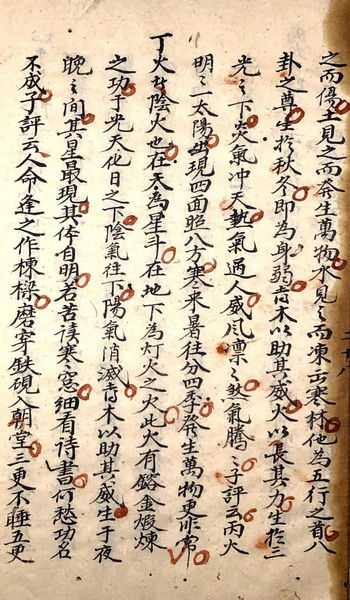 之而傷土見之而發生萬物水見之而凍云寒林他為五行之首八
卦之尊生於秋冬即為身弱喜木以助其威火以長其力生於三
光之下炎氣冲天熱氣過人威風凛之煞氣騰之子評云丙火
明之一太陽出現四面照八方寒来暑往分四季發生萬物更非常
丁火於陰火也在天為星斗在地下為灯火之火此火有鎔金煅煉
之功于光天化日之下陰氣往下陽氣消滅喜木以助其威生于夜
晚之间其星最現其体自明若苦读寒之窓细看诗書何愁功名
不成子評云人命逢之作棟樑磨穿鉄硯入朝堂三更不睡五更